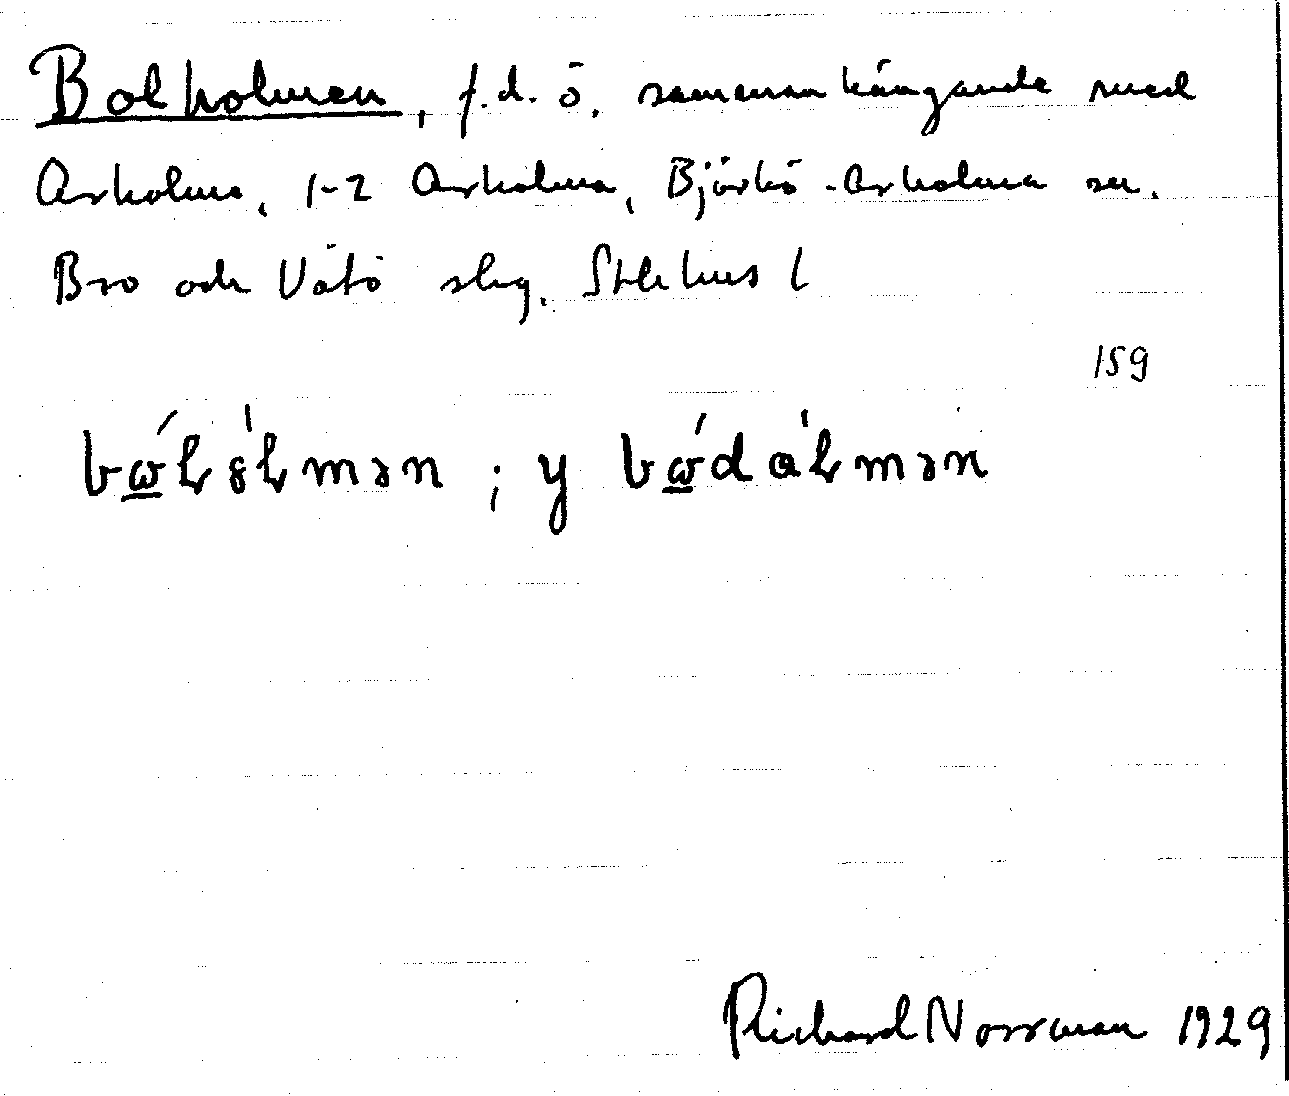 Bolholmen, f.d. ö, sammanhängande med
Arholma, 1-2 Arholma, Björkö-Arholma sn.
Bro och Vätö slg. Sthlms l
159
; y
Richard Norrman 1929